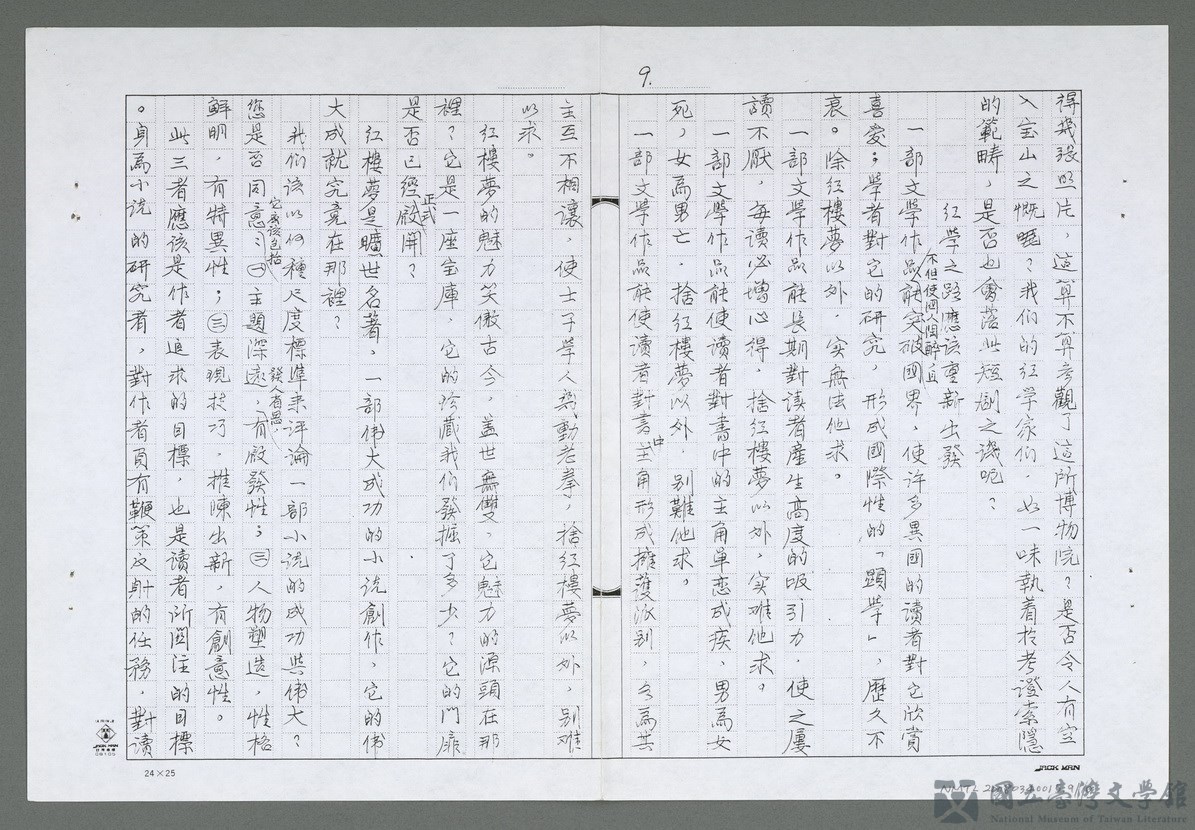 9.
得幾張照片，這算不算參觀了這所博物院？是否令人有空
入宝山之慨呢？我们的红学家们，也一味執着於考證索隱
的範疇，是否也會落此短視之譏呢？
红學之路應该重新出發
一部文學作品能不但使國人陶醉，且突破國界，使许多異國的读者對它欣賞
喜爱；學者對它的研究，形成國際性的「顯學」，歷久不
衰。除红樓夢以外，实無法他求。
一部文學作品能長期對读者產生高度的吸引力，使之屢
讀不厭，每讀必增心得，捨红樓夢以外，实难他求。
一部文學作品能使读者對書中的主角单恋成疾，男為女
死，女為男亡，捨红樓夢以外，别難他求。
一部文學作品能使读者對書中主角形成擁護派别，各為其
主互不相讓，使士子學人幾動老拳，捨红樓夢以外，别难
以求。
红樓夢的魅力笑傲古今，盖世無雙，它魅力的源頭在那
裡？它是一座宝庫，它的珍藏我们發掘了多少？它的门扉
是否已經正式啟開？
红樓夢是曠世名著，一部偉大成功的小说創作，它的偉
大成就究竟在那裡？
我们该以何種尺度標準来评論一部小说的成功與偉大？
您是否同意：它應该包括㊀主題深遠，發人省思，有啟發性；㊁人物塑造，性格
鮮明，有特異性；㊂表現技巧，推陳出新，有創意性。
此三者應该是作者追求的目標，也是读者所関注的目標
。身為小说的研究者，對作者頁有鞭策及射的任務，對读
JACK MAN
24×25
JACK MAN
國立臺灣文學館
National Museum of Taiwan Literature